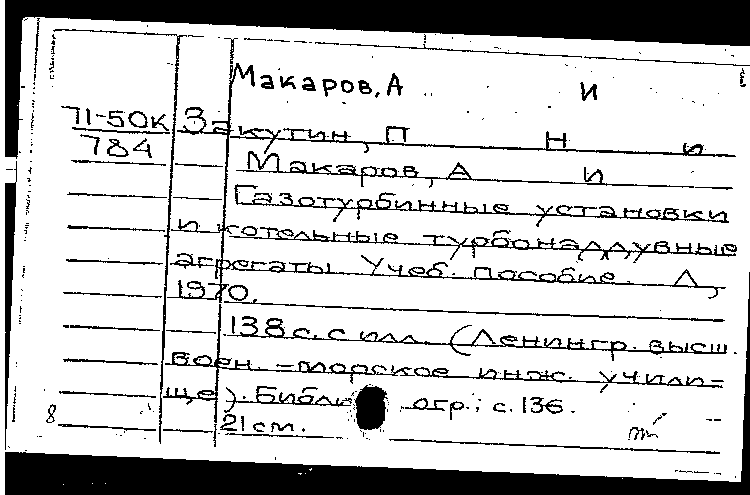 Макаров, А И
71-50К Закутин, П Н и
784 Макаров, А И
Газотурбинные установки
и котельные турбонаддувные
агрегаты. Учеб. пособие. Л,
1970.
138 с. с илл. (Ленингр. высш.
воен. =морское инж. учили=
ще). Библи огр.: с. 136.
8 21 см.